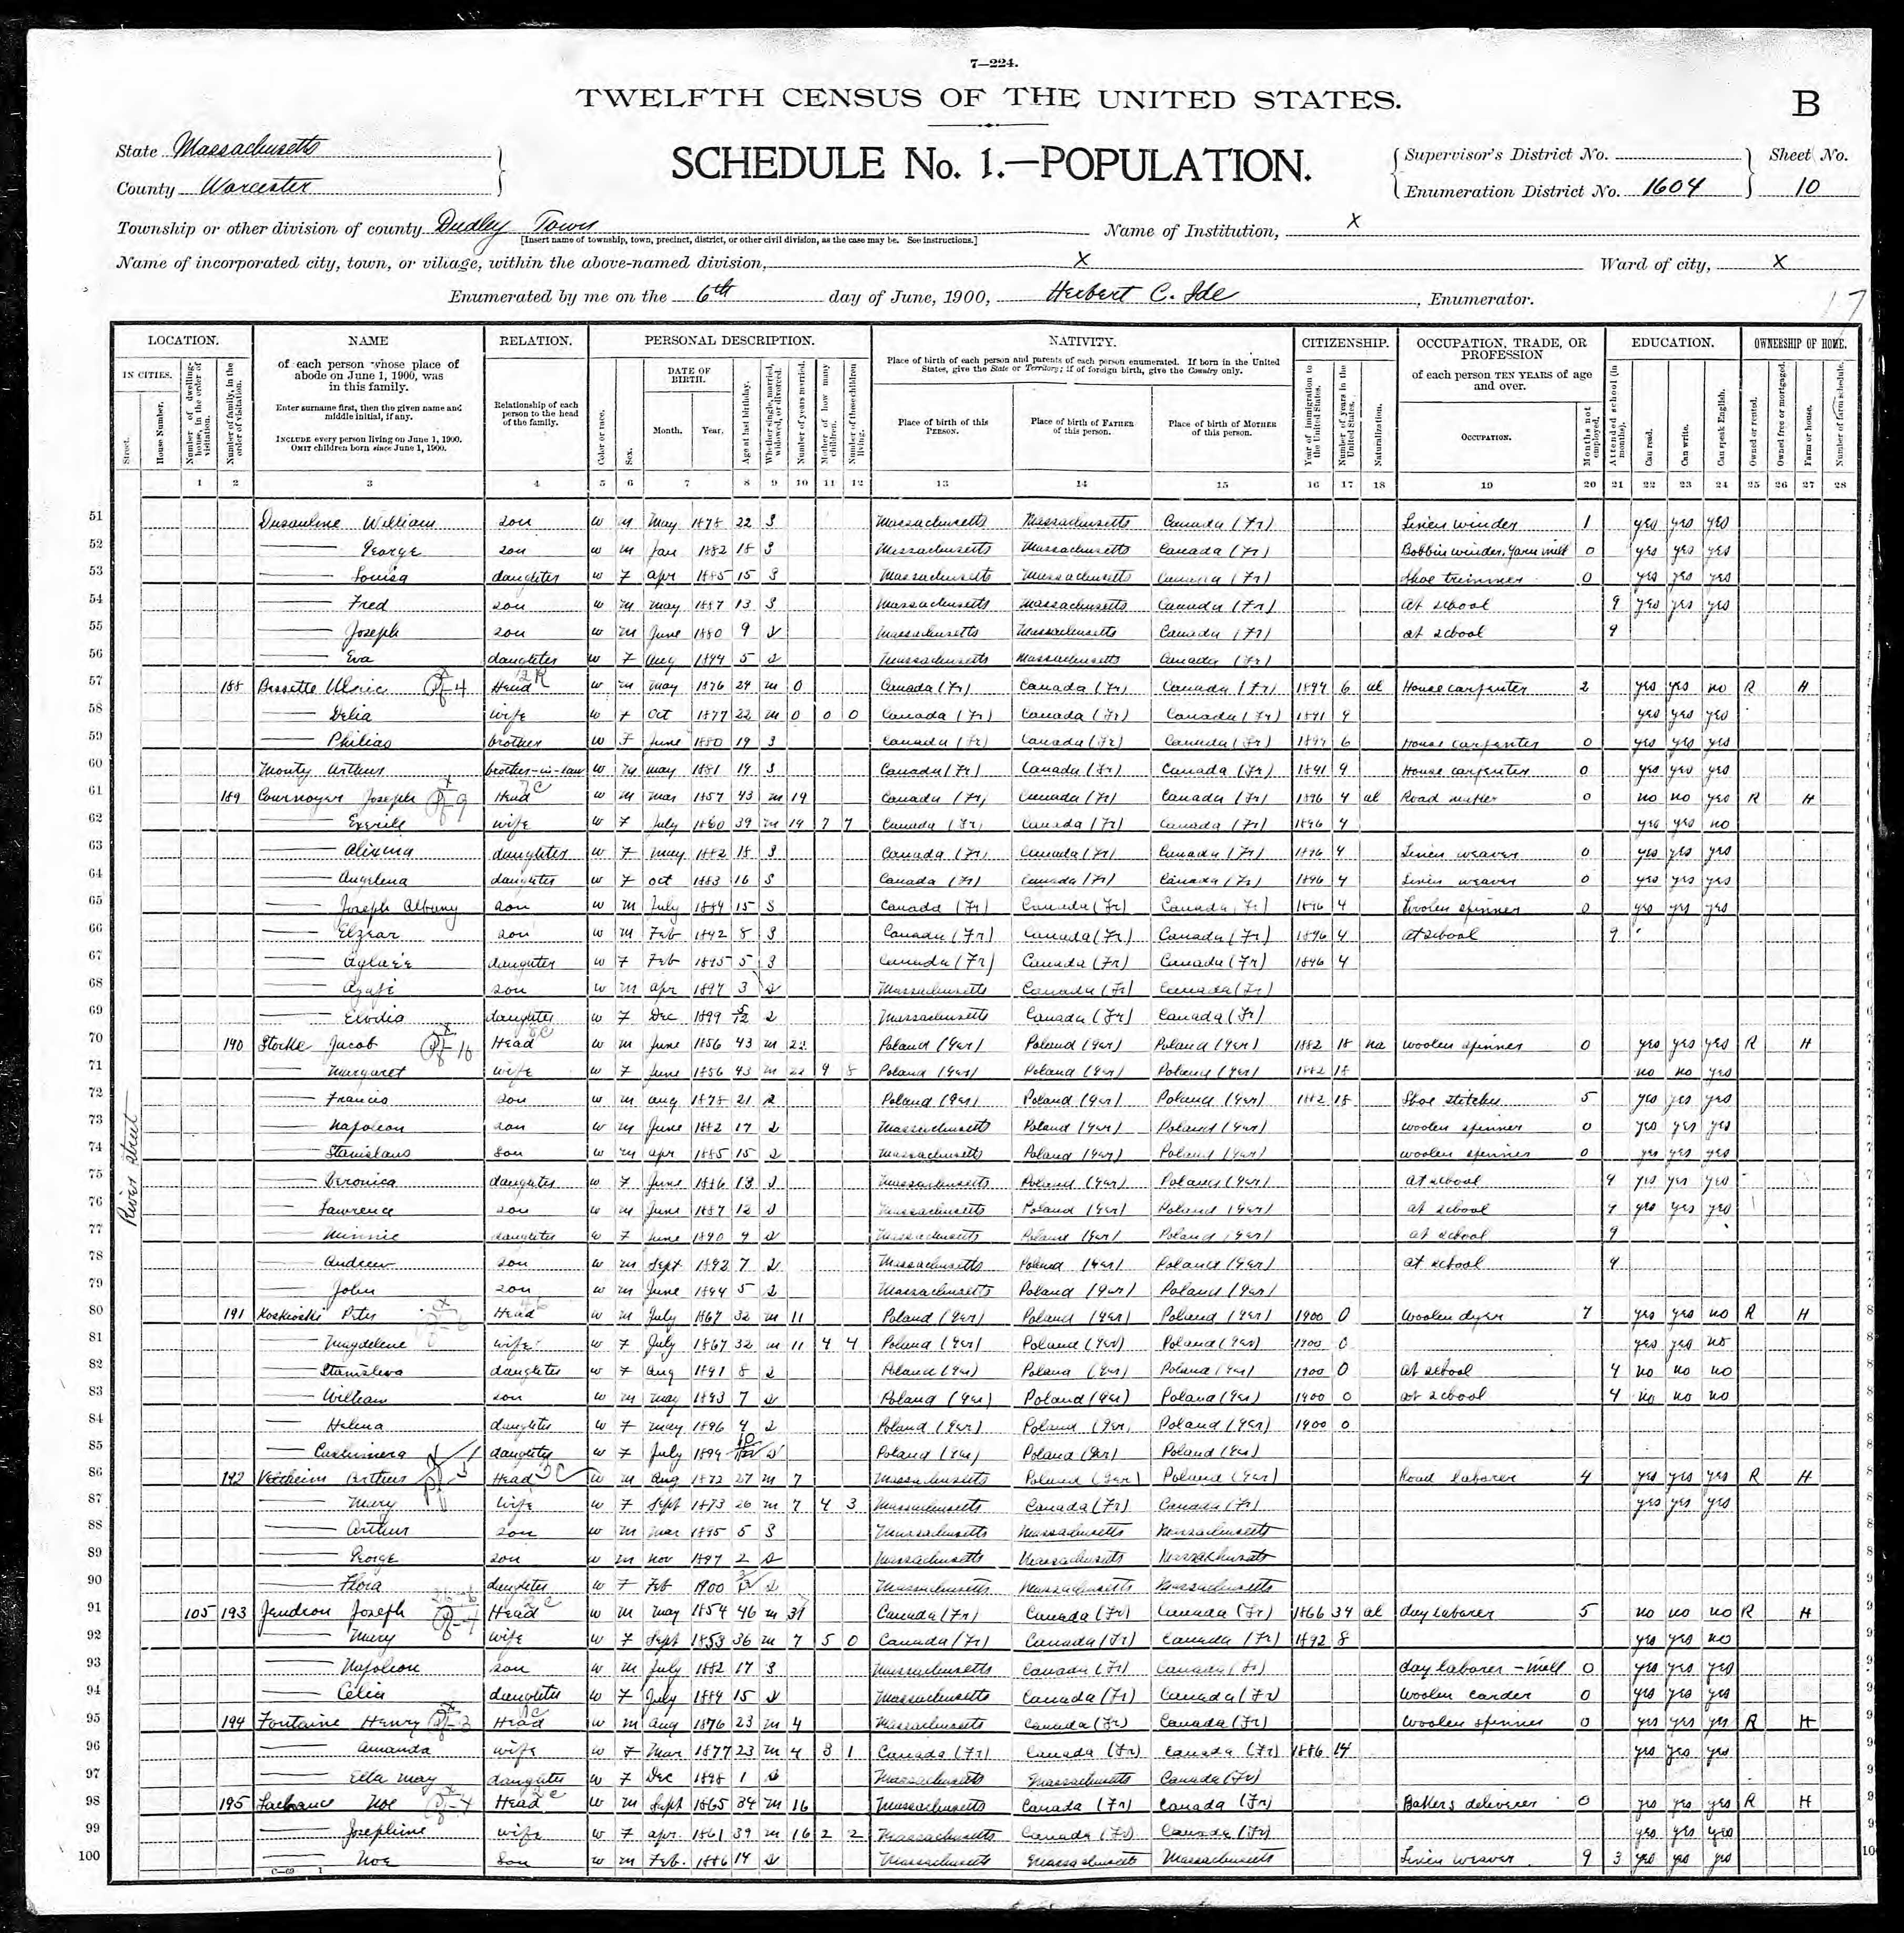 7—224.
TWELFTH CENSUS OF THE UNITED STATES.
B
State Massachusetts
County Worcester
SCHEDULE No. 1.—POPULATION.
Supervisor's District No.
Enumeration District No. 1604
Sheet No.
10
Township or other division of county Dudley Town
[Insert name of township, town, precinct, district, or other civil division, as the case may be. See instructions.]
Name of Institution, X
Name of incorporated city, town, or village, within the above-named division, X
Ward of city, X
Enumerated by me on the 6th day of June, 1900, Herbert C. Ide, Enumerator.
LOCATION.
IN CITIES.
Street.
House Number.
Number of dwelling-house, in the order of visitation.
Number of family, in the order of visitation.
NAME
of each person whose place of abode on June 1, 1900, was in this family.
Enter surname first, then the given name and middle initial, if any.
INCLUDE every person living on June 1, 1900.
OMIT children born since June 1, 1900.
RELATION.
Relationship of each person to the head of the family.
PERSONAL DESCRIPTION.
Color or race.
Sex.
DATE OF BIRTH.
Month.
Year.
Age at last birthday.
Whether single, married, widowed, or divorced.
Number of years married.
Mother of how many children.
Number of these children living.
NATIVITY.
Place of birth of each person and parents of each person enumerated. If born in the United States, give the State or Territory; if of foreign birth, give the Country only.
Place of birth of this PERSON.
Place of birth of FATHER of this person.
Place of birth of MOTHER of this person.
CITIZENSHIP.
Year of immigration to the United States.
Number of years in the United States.
Naturalization.
OCCUPATION, TRADE, OR PROFESSION
of each person TEN YEARS of age and over.
OCCUPATION.
Months not employed.
EDUCATION.
Attended school (in months).
Can read.
Can write.
Can speak English.
OWNERSHIP OF HOME.
Owned or rented.
Owned free or mortgaged.
Farm or house.
Number of farm schedule.
1 2 3 4 5 6 7 8 9 10 11 12 13 14 15 16 17 18 19 20 21 22 23 24 25 26 27 28
River Street
51 William son w m May 1878 22 S Massachusetts Massachusetts Canada (Fr) Linen winder 1 yes yes yes
52 George son w m Jan 1882 18 S Massachusetts Massachusetts Canada (Fr) Bobbin winder, Yarn mill 0 yes yes yes
53 Louisa daughter w F Apr 1885 15 S Massachusetts Massachusetts Canada (Fr) Shoe trimmer 0 yes yes yes
54 Fred son w m May 1887 13 S Massachusetts Massachusetts Canada (Fr) at school 9 yes yes yes
55 Joseph son w m June 9 S Massachusetts Massachusetts Canada (Fr) at school 9
56 Eva daughter w F Aug 1894 5 S Massachusetts Massachusetts Canada (Fr)
57 188 Bissette Ulric Head w m May 1876 24 m 0 Canada (Fr) Canada (Fr) Canada (Fr) 1894 6 al House carpenter 2 yes yes no R H
58 Delia wife w F Oct 1877 22 m 0 0 0 Canada (Fr) Canada (Fr) Canada (Fr) 1891 9 yes yes yes
59 Philias brother w F June 1880 19 S Canada (Fr) Canada (Fr) Canada (Fr) 1894 6 House carpenter 0 yes yes yes
60 Monty Arthur brother-in-law w m May 1881 19 S Canada (Fr) Canada (Fr) Canada (Fr) 1891 9 House carpenter 0 yes yes yes
61 189 Cournoyer Joseph Head w m Mar 1857 43 m 19 Canada (Fr) Canada (Fr) Canada (Fr) 1896 4 al Road maker 0 no no yes R H
62 wife w F July 1860 39 m 19 7 7 Canada (Fr) Canada (Fr) Canada (Fr) 1896 4 yes yes no
63 Alixina daughter w F May 1882 18 S Canada (Fr) Canada (Fr) Canada (Fr) 1896 4 Linen weaver 0 yes yes yes
64 Angelena daughter w F Oct 1883 16 S Canada (Fr) Canada (Fr) Canada (Fr) 1896 4 Linen weaver 0 yes yes yes
65 Joseph Albany son w m July 1884 15 S Canada (Fr) Canada (Fr) Canada (Fr) 1896 4 Woolen spinner 0 yes yes yes
66 Elzear son w m Feb 1892 8 S Canada (Fr) Canada (Fr) Canada (Fr) 1896 4 at school 9
67 daughter w F Feb 1895 5 S Canada (Fr) Canada (Fr) Canada (Fr) 1896 4
68 son w m Apr 1897 3 S Massachusetts Canada (Fr) Canada (Fr)
69 daughter w F Dec 1899 5/12 S Massachusetts Canada (Fr) Canada (Fr)
70 190 Jacob Head w m June 1856 43 m 22 Poland (Ger) Poland (Ger) Poland (Ger) 1882 18 na woolen spinner 0 yes yes yes R H
71 Margaret wife w F June 1856 43 m 22 9 8 Poland (Ger) Poland (Ger) Poland (Ger) 1882 18 no no yes
72 Francis son w m Aug 1878 21 S Poland (Ger) Poland (Ger) Poland (Ger) 1882 18 Shoe stitcher 5 yes yes yes
73 Napoleon son w m June 1882 17 S Massachusetts Poland (Ger) Poland (Ger) woolen spinner 0 yes yes yes
74 Stanislaus Son w m Apr 1885 15 S Massachusetts Poland (Ger) Poland (Ger) woolen spinner 0 yes yes yes
75 Veronica daughter w F June 1886 13 S Massachusetts Poland (Ger) Poland (Ger) at school 9 yes yes yes
76 Lawrence son w m June 1887 12 S Massachusetts Poland (Ger) Poland (Ger) at school 9 yes yes yes
77 Minnie daughter w F June 1890 9 S Massachusetts Poland (Ger) Poland (Ger) at school 9
78 Andrew son w m Sept 1892 7 S Massachusetts Poland (Ger) Poland (Ger) at school 9
79 John son w m June 1894 5 S Massachusetts Poland (Ger) Poland (Ger)
80 191 Peter Head w m July 1867 32 m 11 Poland (Ger) Poland (Ger) Poland (Ger) 1900 0 Woolen dyer 7 yes yes no R H
81 Magdelene wife w F July 1867 32 m 11 4 4 Poland (Ger) Poland (Ger) Poland (Ger) 1900 0 yes yes no
82 daughter w F Aug 1891 8 S Poland (Ger) Poland (Ger) Poland (Ger) 1900 0 at school 4 no no no
83 William son w m May 1893 7 S Poland (Ger) Poland (Ger) Poland (Ger) 1900 0 at school 4 no no no
84 Helena daughter w F May 1896 4 S Poland (Ger) Poland (Ger) Poland (Ger) 1900 0
85 daughter w F July 1899 10/12 S Poland (Ger) Poland (Ger) Poland (Ger)
86 192 Arthur Head w m Aug 1872 27 m 7 Massachusetts Poland (Ger) Poland (Ger) Road laborer 4 yes yes yes R H
87 Mary wife w F Sept 1873 26 m 7 4 3 Massachusetts Canada (Fr) Canada (Fr) yes yes yes
88 Arthur son w m Mar 1895 5 S Massachusetts Massachusetts Massachusetts
89 George son w m Nov 1897 2 S Massachusetts Massachusetts Massachusetts
90 Flora daughter w F Feb 1900 3/12 S Massachusetts Massachusetts Massachusetts
91 105 193 Jendron Joseph Head w m May 1854 46 m Canada (Fr) Canada (Fr) Canada (Fr) 1866 34 al day laborer 5 no no no R H
92 Mary wife w F Sept 1853 36 m 7 5 0 Canada (Fr) Canada (Fr) Canada (Fr) 1892 8 yes yes no
93 Napoleon son w m July 1882 17 S Massachusetts Canada (Fr) Canada (Fr) day laborer - mill 0 yes yes yes
94 Celia daughter w F July 1884 15 S Massachusetts Canada (Fr) Canada (Fr) Woolen carder 0 yes yes yes
95 194 Fontaine Henry Head w m Aug 1876 23 m 4 Massachusetts Canada (Fr) Canada (Fr) Woolen spinner 0 yes yes yes R H
96 Amanda wife w F Mar 1877 23 m 4 3 1 Canada (Fr) Canada (Fr) Canada (Fr) 1886 14 yes yes yes
97 Ella May daughter w F Dec 1898 1 S Massachusetts Massachusetts Canada (Fr)
98 195 Lachance Noe Head w m Sept 1865 34 m 16 Massachusetts Canada (Fr) Canada (Fr) Bakers deliverer 0 yes yes yes R H
99 Josephine wife w F Apr. 1861 39 m 16 2 2 Massachusetts Canada (Fr) Canada (Fr) yes yes yes
100 Noe Son w m Feb. 1886 14 S Massachusetts Massachusetts Massachusetts Linen weaver 9 3 yes yes yes